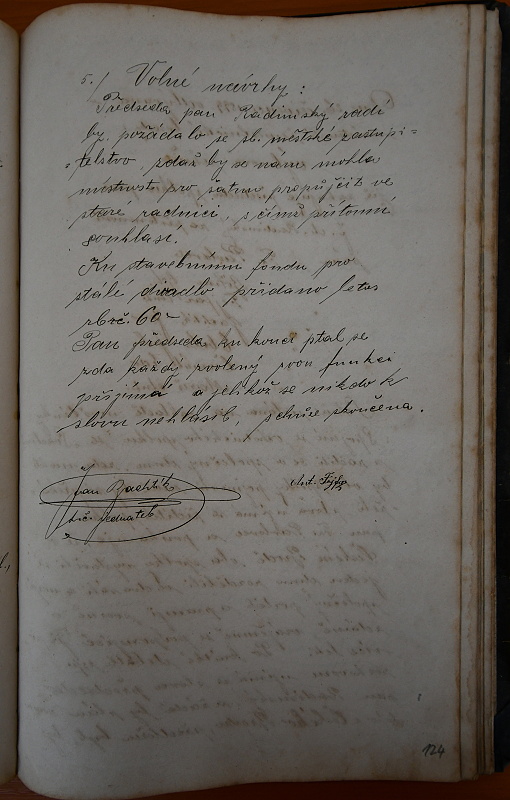 5./ Volné návrhy:
Předseda pan Radimský radí
by požádalo se sl. městské zastupi=
=telstvo, zdaž by se nám mohla
místnost pro šatnu propůjčit ve
staré radnici, s čímž přítomní
souhlasí.
Ku stavebnímu fondu pro
stálé divadlo přidáno letos
rkč. 60–
Pan předseda ku konci ptal se
zda každý zvolený svou funkci
přijímá a jelikož se nikdo k
slovu nehlásil, schůze skončena.
Jan Bachtík
jednatel
Ant.
124